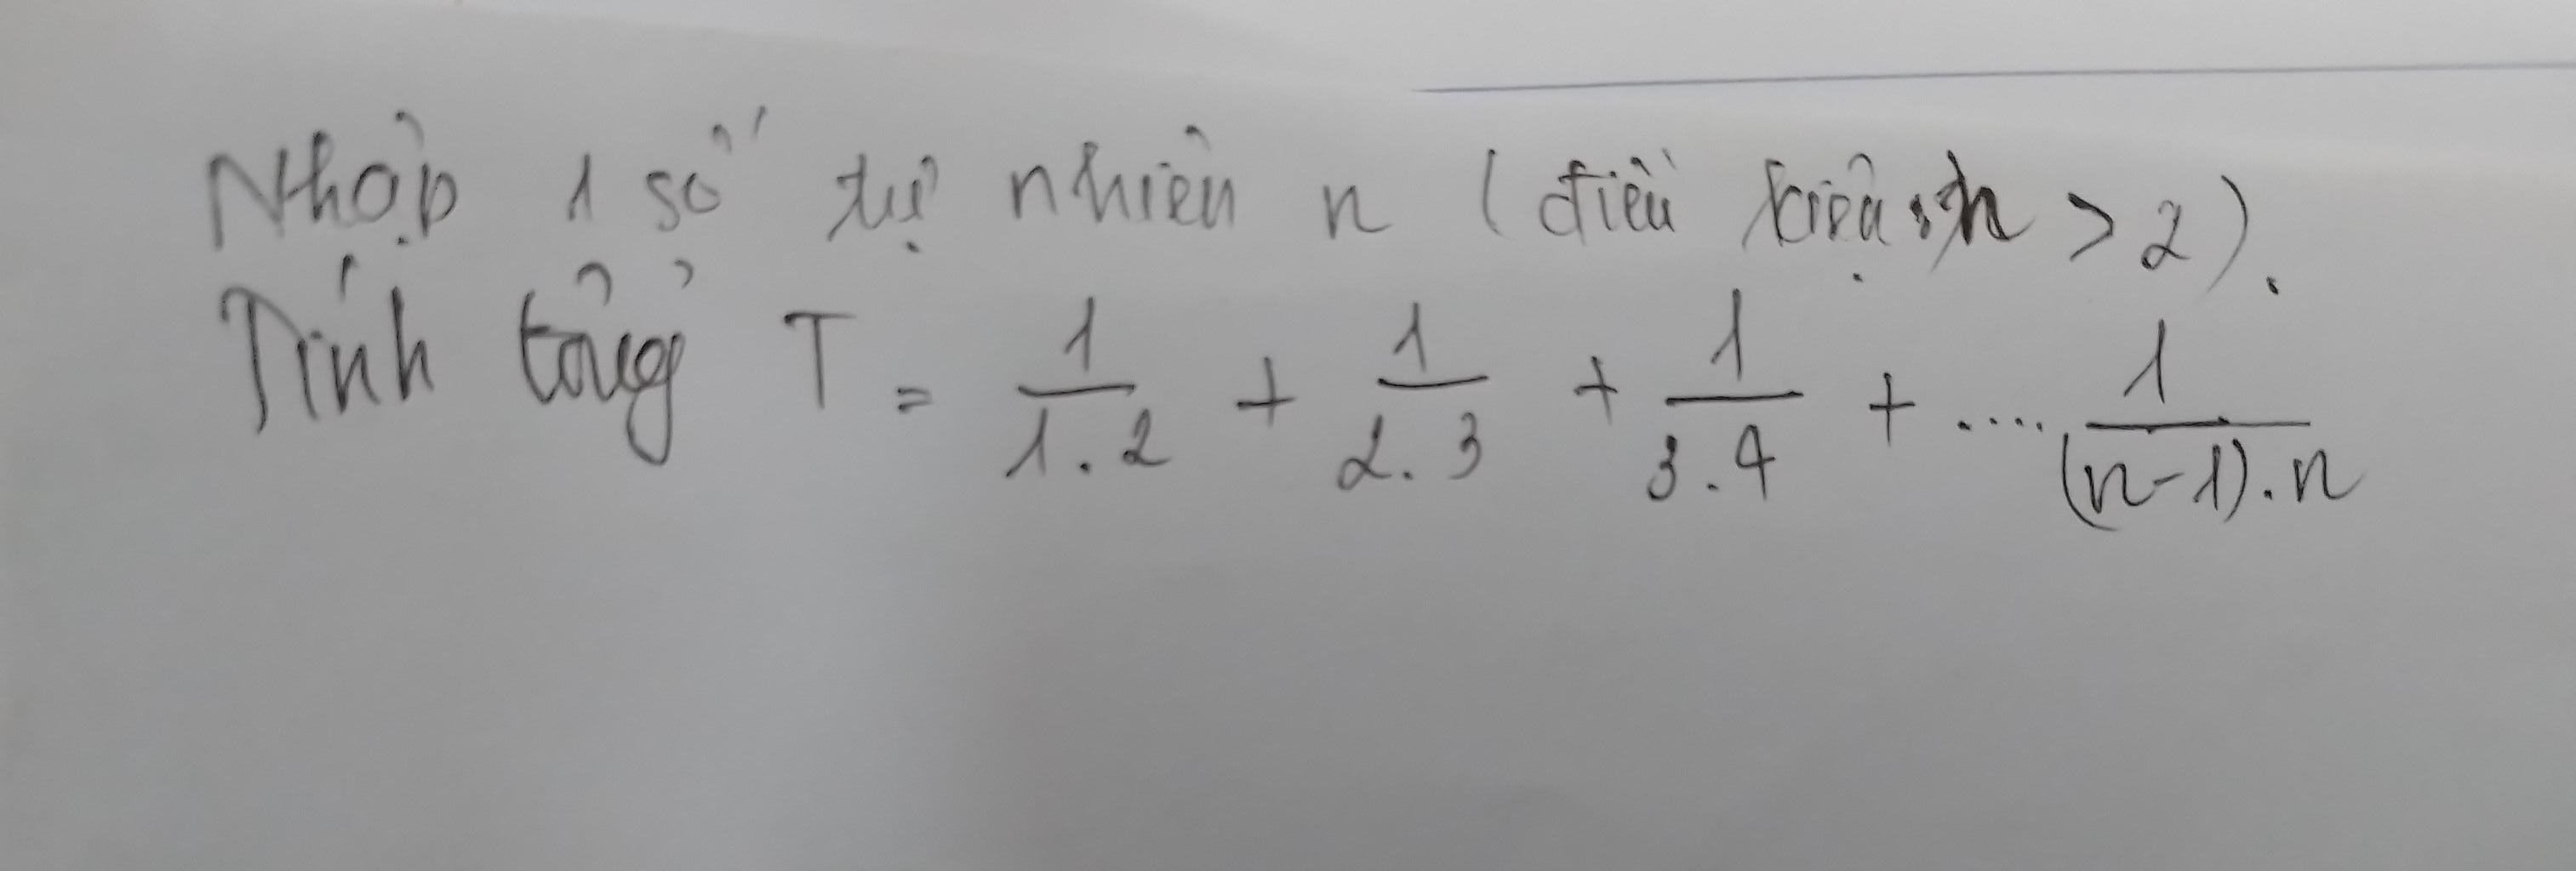 Nhập 1 số tự nhiên n (điều kiện n > 2).
Tính tổng T = 1/1.2 + 1/2.3 + 1/3.4 + .... 1/(n-1).n